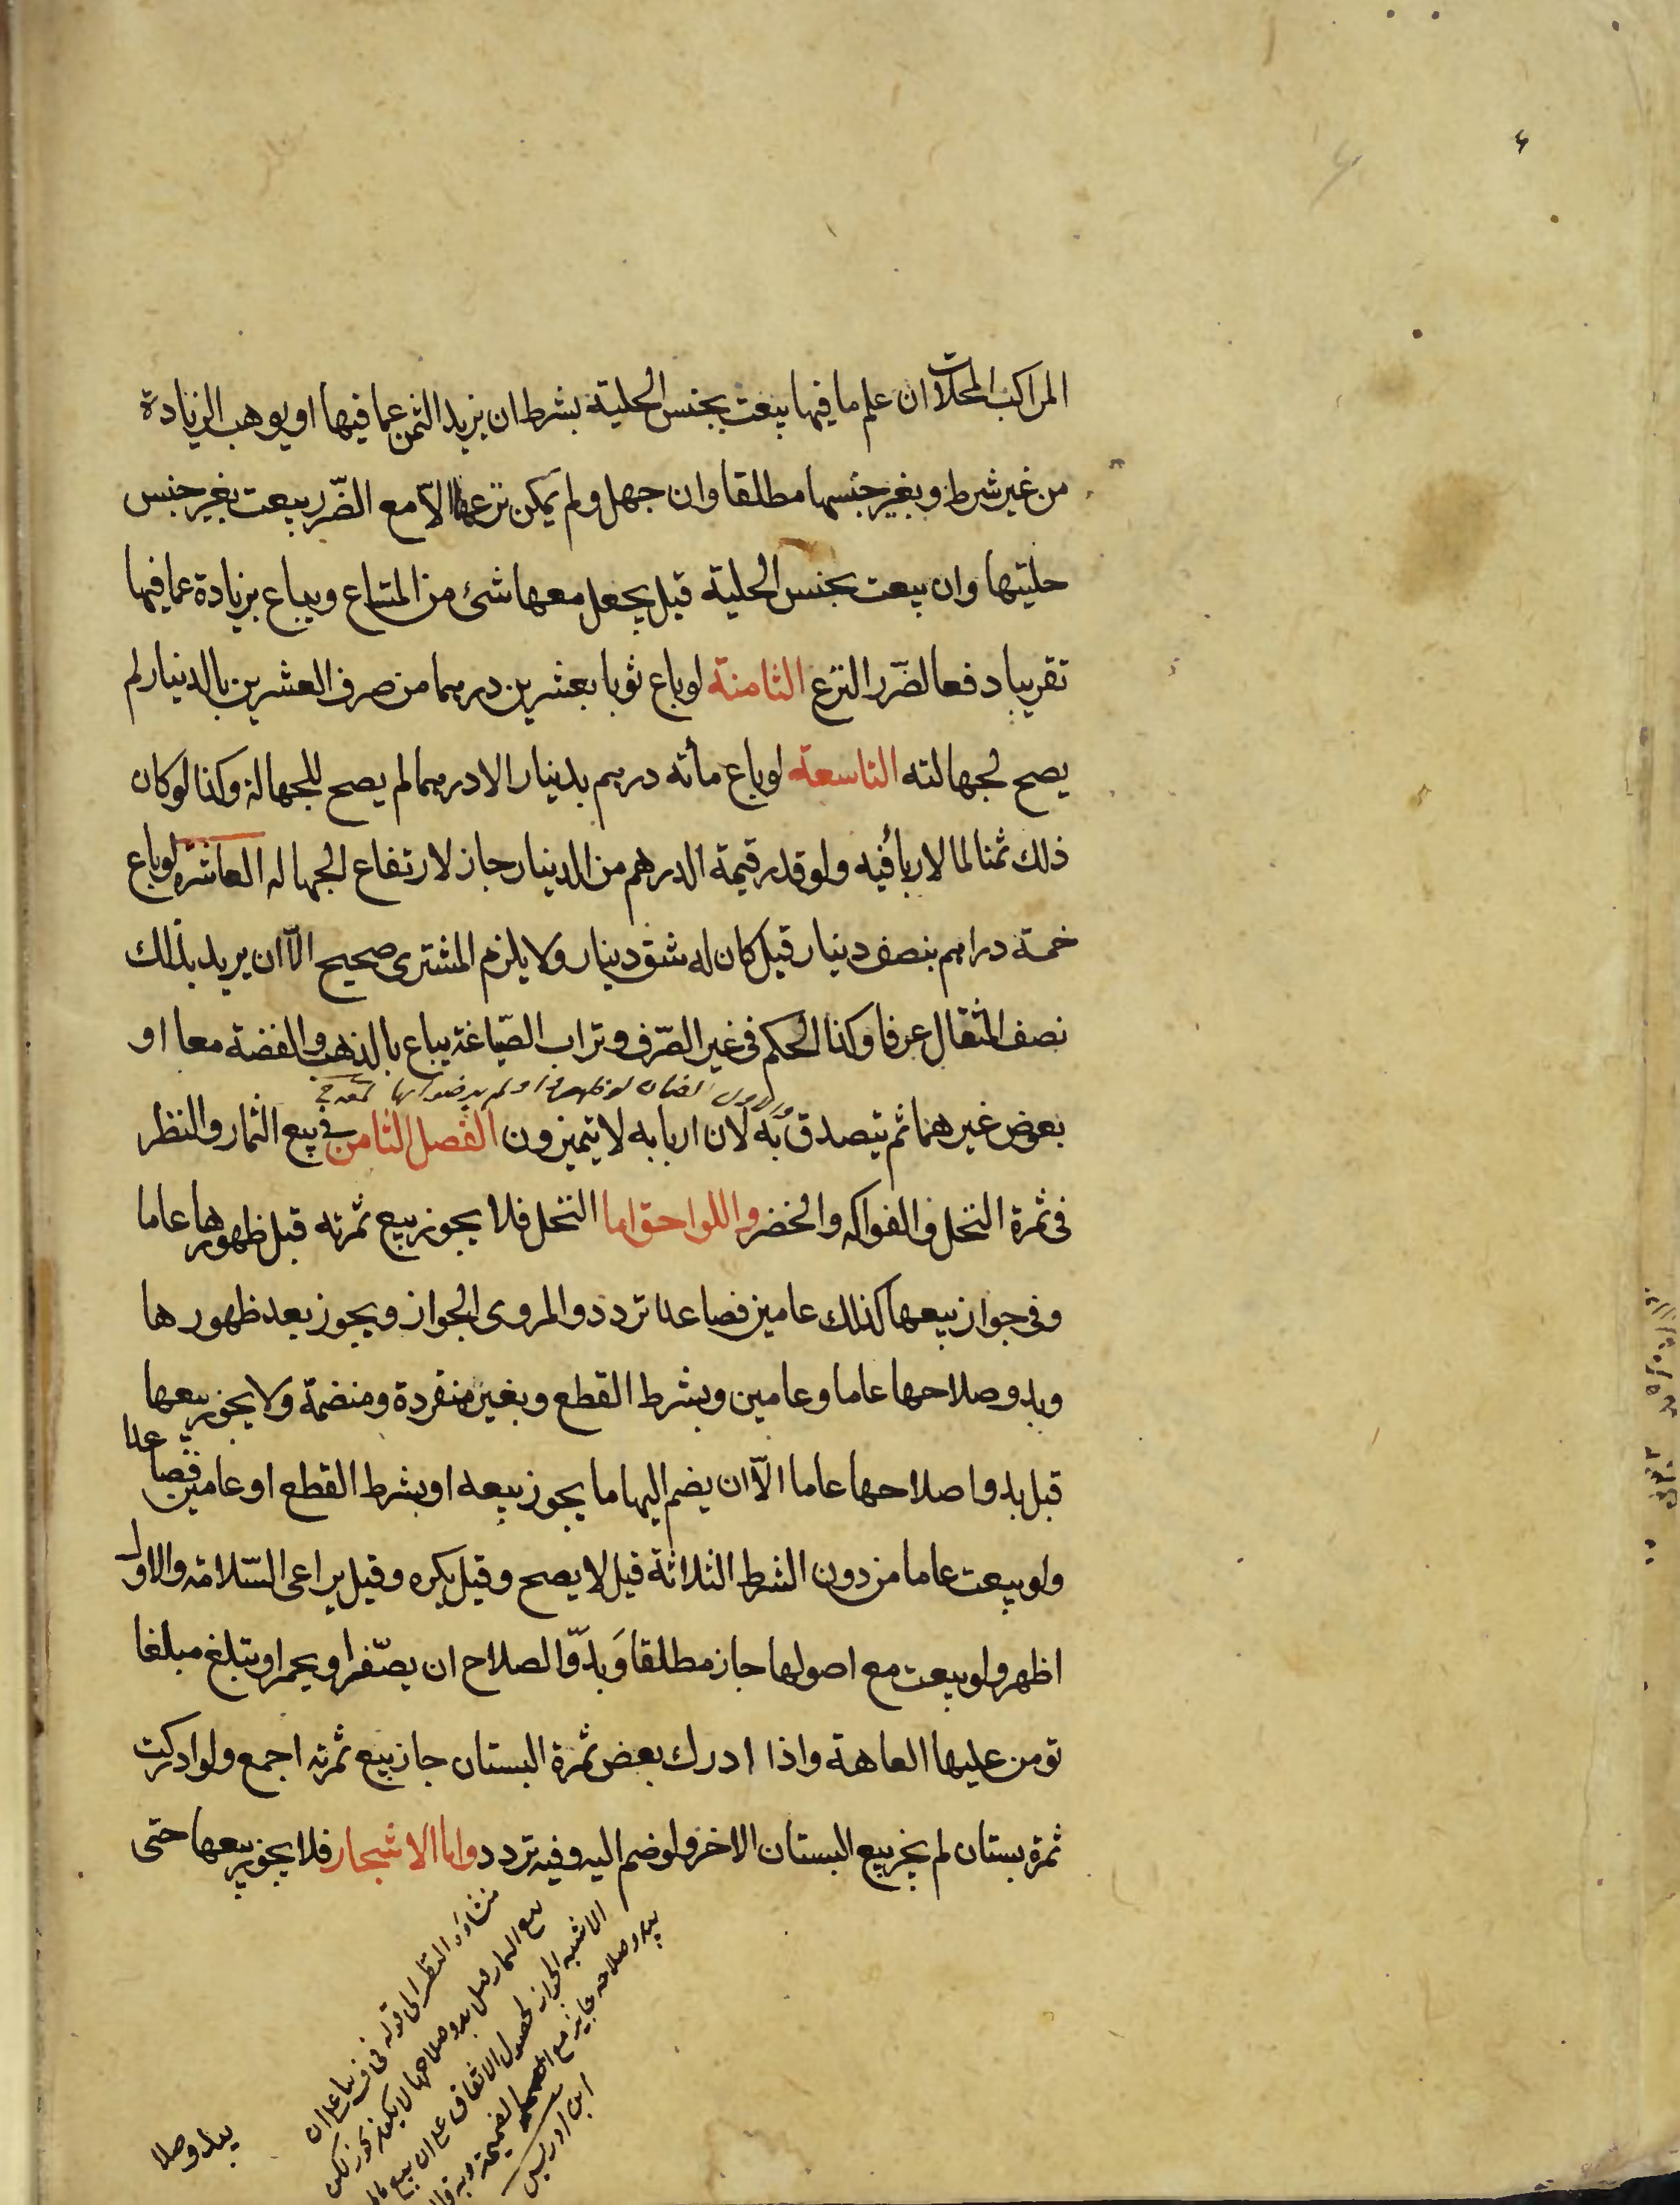 المراكب المحلات ان علم ما فيها بيعت بجنس الحلية بشرط ان يزيد الثمن عما فيها او يوهب الزيادة
من غير شرط و بغير جنسها مطلقا وان جهل ولم يمكن نزعها الّا مع الضّرر بيعت بغير جنس
حليتها وان بيعت بجنس الحلية قيل يجعل معها شئ من المتاع ويباع بزيادة عما فيها
تقريبا دفعا لضرر النزع الثامنة لو باع ثوبا بعشرين درهما من صرف العشرين بالدينار لم
يصح لجهالته التاسعة لو باع مأته درهم بدينار الا درهما لم يصح للجهالة وكذا لو كان
ذلك ثمنا لما لا ربا فيه ولو قدر قيمة الدرهم من الدينار جاز لارتفاع الجهاله العاشرة لو باع
خمسة دراهم بنصف دينار قيل كان له شق دينار ولا يلزم المشترى صحيح الّا ان يريد بذلك
نصف المثقال عرفا وكذا الحكم فى غير الصّرف وتراب الصّياغة يباع بالذهب والفضة معا او
بعوض غيرهما ثم يتصدق به لان اربابه لا يتميزون الفصل الثامن فى بيع الثمار والنظر
فى ثمرة النخل والفواكه والخضر واللواحق اما النخل فلا يجوز بيع ثمرته قبل ظهورها عاما
وفى جواز بيعها كذلك عامين فصاعدا تردد والمروى الجواز ويجوز بعد ظهورها
وبدو صلاحها عاما وعامين وبشرط القطع وبغيره منفردة ومنضمة ولا يجوز بيعها
قبل بدوا صلاحها عاما الّا ان يضم اليها ما يجوز بيعه او بشرط القطع او عامين فصاعدا
ولو بيعت عاما من دون الشرط الثلاثة قيل لا يصح وقيل يكره وقيل يراعى السّلامة والاول
اظهر ولو بيعت مع اصولها جاز مطلقا وَبدوّ الصلاح ان يصّفر او يحمر او يبلغ مبلغا
تومن عليها العاهة واذا ادرك بعض ثمرة البستان جاز بيع ثمرته اجمع ولو ادركت
ثمرة بستان لم يجز بيع البستان الاخر ولو ضم اليه وفيه تردد واما الاشجار فلا يجوز بيعها حتى
الاشبه الجواز لحصول الاتفاق على ان بيع
يبدو صلاحه جايز مع الضميمة
ابن ادريس
يبدو صلا